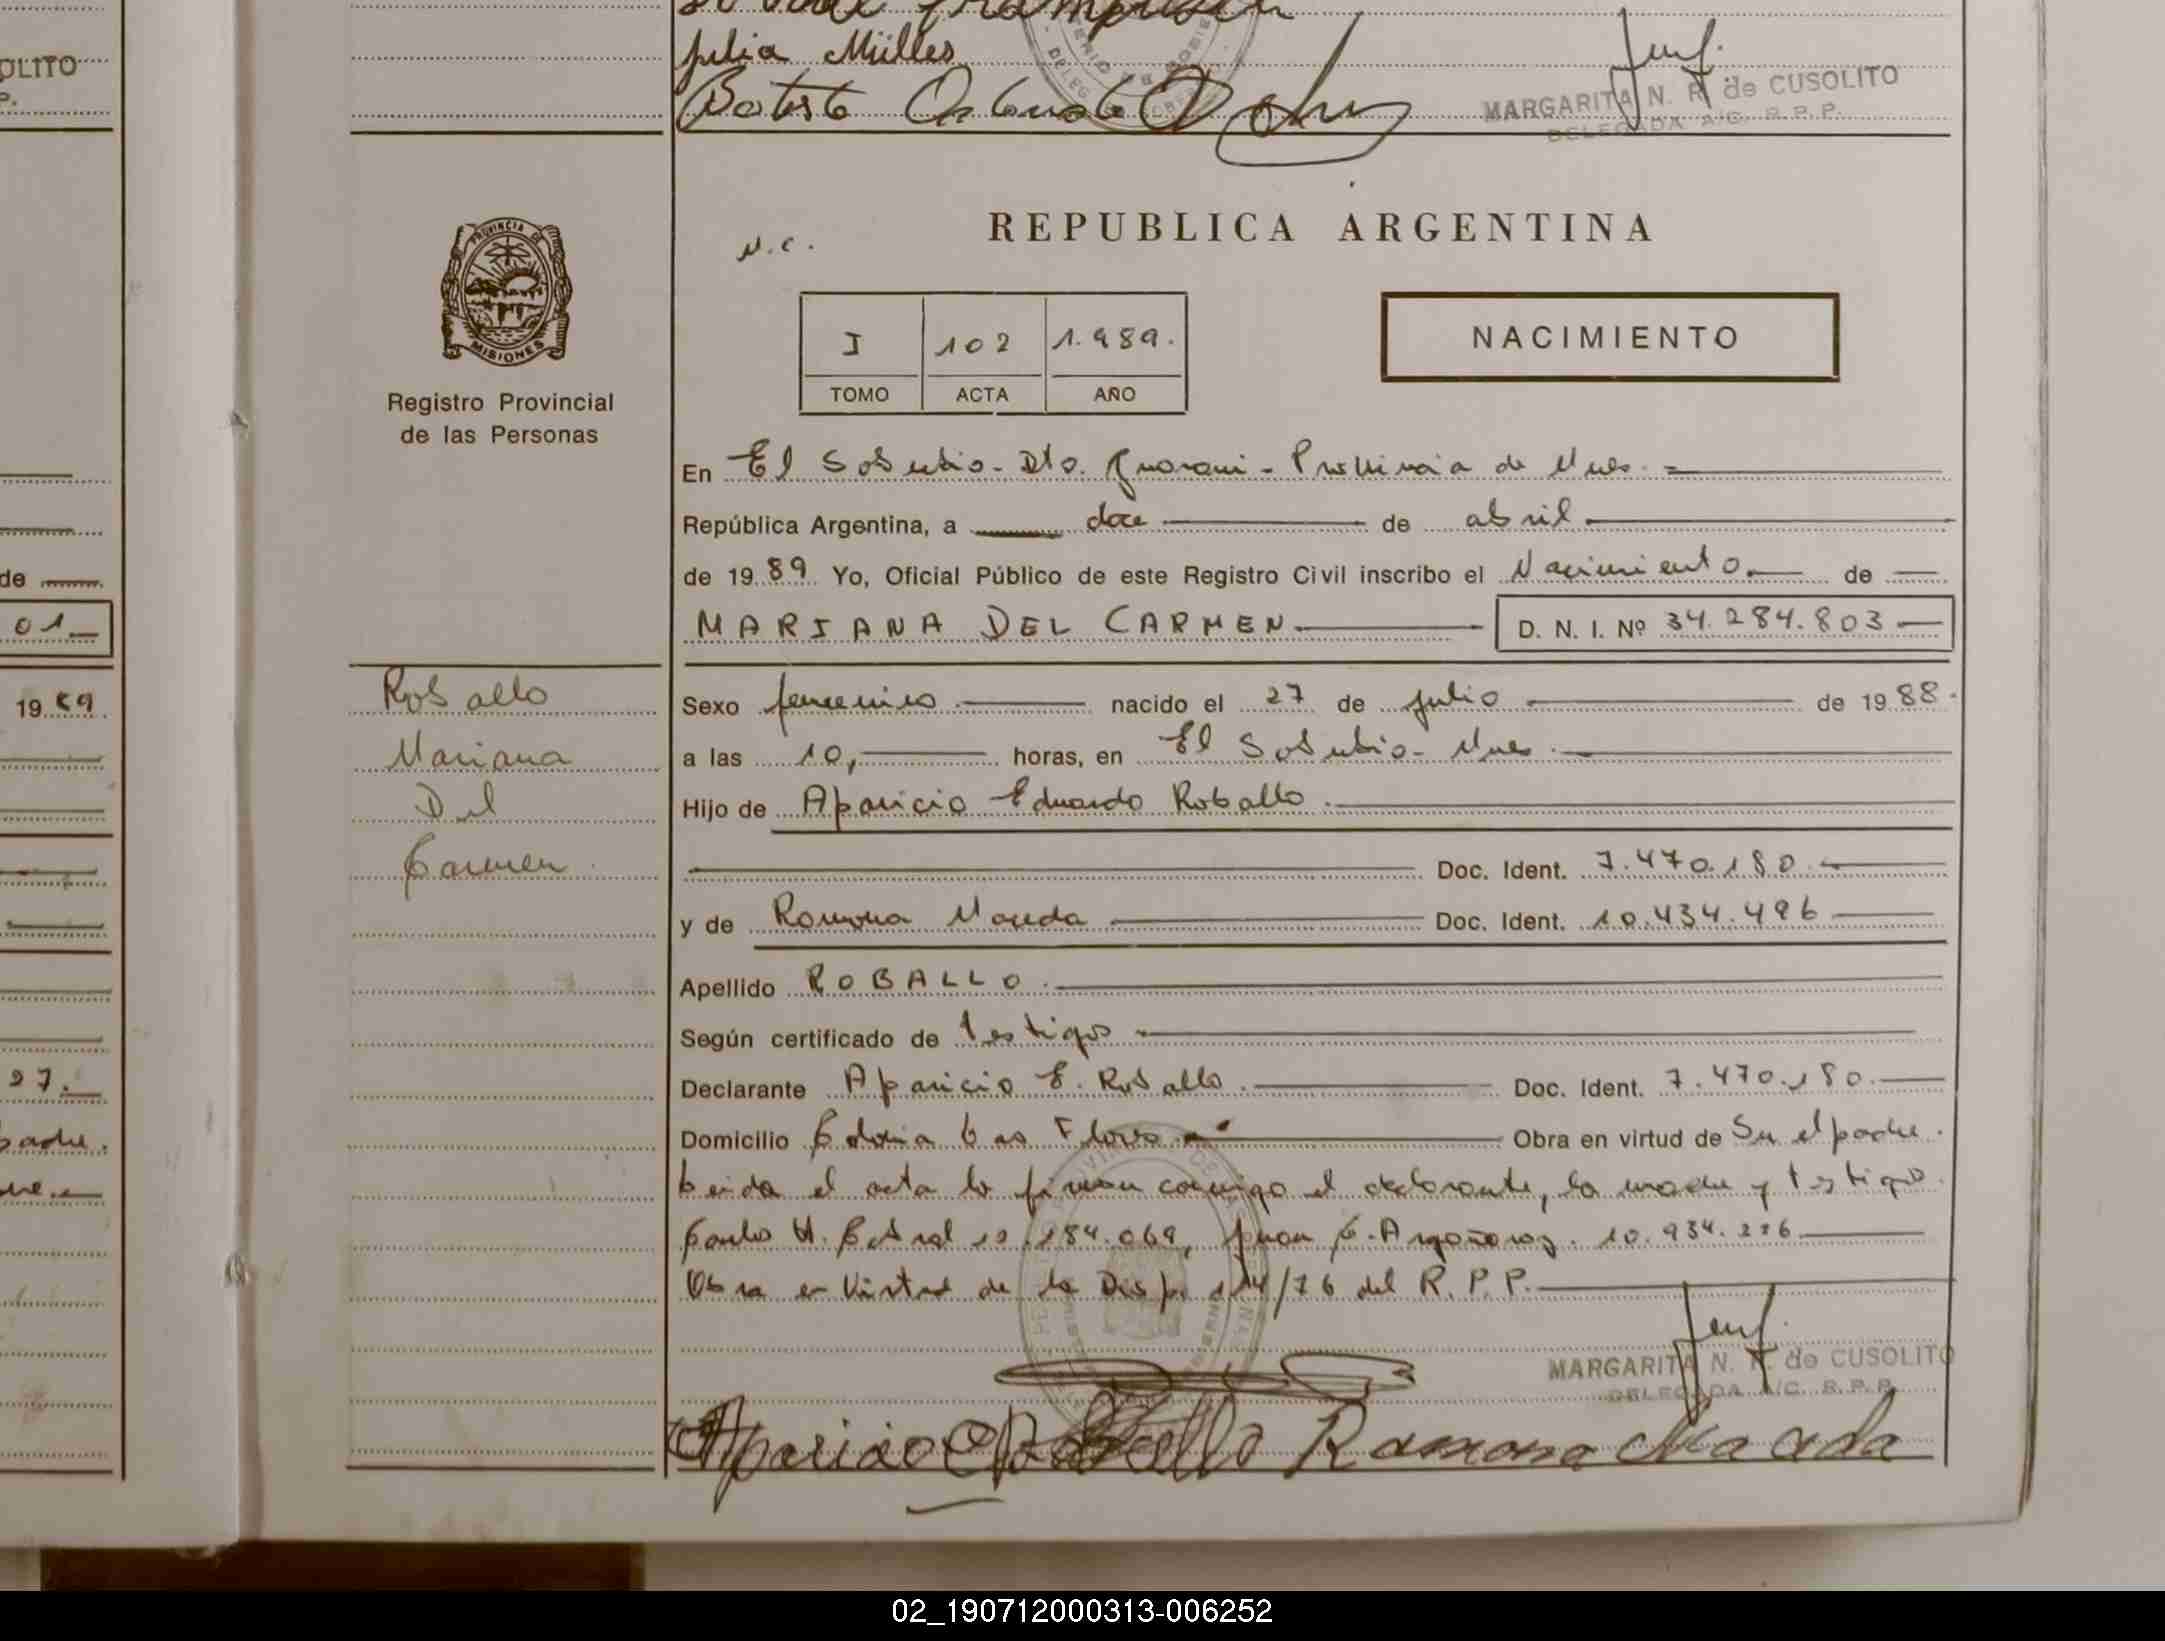 OLITO
P.
Julia Müller
MARGARITA N. R. de CUSOLITO
DELEGADA A/C. R. P. P.
N.C.
REPUBLICA ARGENTINA
PROVINCIA DE
MISIONES
I 102 1.989.
TOMO ACTA AÑO
NACIMIENTO
Registro Provincial
de las Personas
En El Soberbio - Dto. Guarani - Provincia de Mnes.
República Argentina, a doce de abril
de 1989 Yo, Oficial Público de este Registro Civil inscribo el Nacimiento de
MARIANA DEL CARMEN D. N. I. Nº 34.284.803
de
01
1989
Roballo
Mariana
Del
Carmen
Sexo femenino nacido el 27 de julio de 1988.
a las 10, horas, en El Soberbio - Mnes.
Hijo de Aparicio Eduardo Roballo
Doc. Ident. 7.470.180.
y de Ramona Maceda Doc. Ident. 10.434.496
Apellido ROBALLO
Según certificado de testigos
Declarante Aparicio E. Roballo. Doc. Ident. 7.470.180.
Domicilio Colonia Las Flores Obra en virtud de Ser el padre.
Leida el acta la firman conmigo el declarante, la madre y testigos
Carlos H. Cabral 10.184.069, Juan C. Argañaraz. 10.934.226
Obra en Virtud de la Disp. 114/76 del R.P.P.
27.
padre.
MARGARITA N. R. de CUSOLITO
DELEGADA A/C. R.P.P.
Aparicio E Roballo Ramona Maceda
02_190712000313-006252